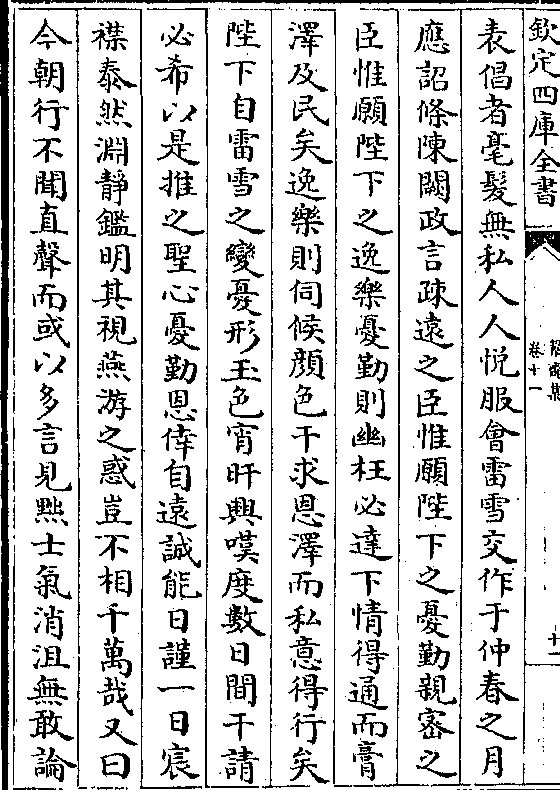 欽定四庫全書
卷十一
表倡者毫髮無私人人悦服㑹雷雪交作于仲春之月
應詔條陳闕政言疎遠之臣惟願陛下之憂勤親宻之
臣惟願陛下之逸樂憂勤則幽枉必達下情得通而膏
澤及民矣逸樂則伺候顔色干求恩澤而私意得行矣
陛下自雷雪之變憂形玉色宵旰興嘆度數日間干請
必希以是推之聖心憂勤恩倖自逺誠能日謹一日宸
襟泰然淵靜鑑明其視燕游之惑豈不相千萬哉又曰
今朝行不聞直聲而或以多言見㸃士氣消沮無敢論